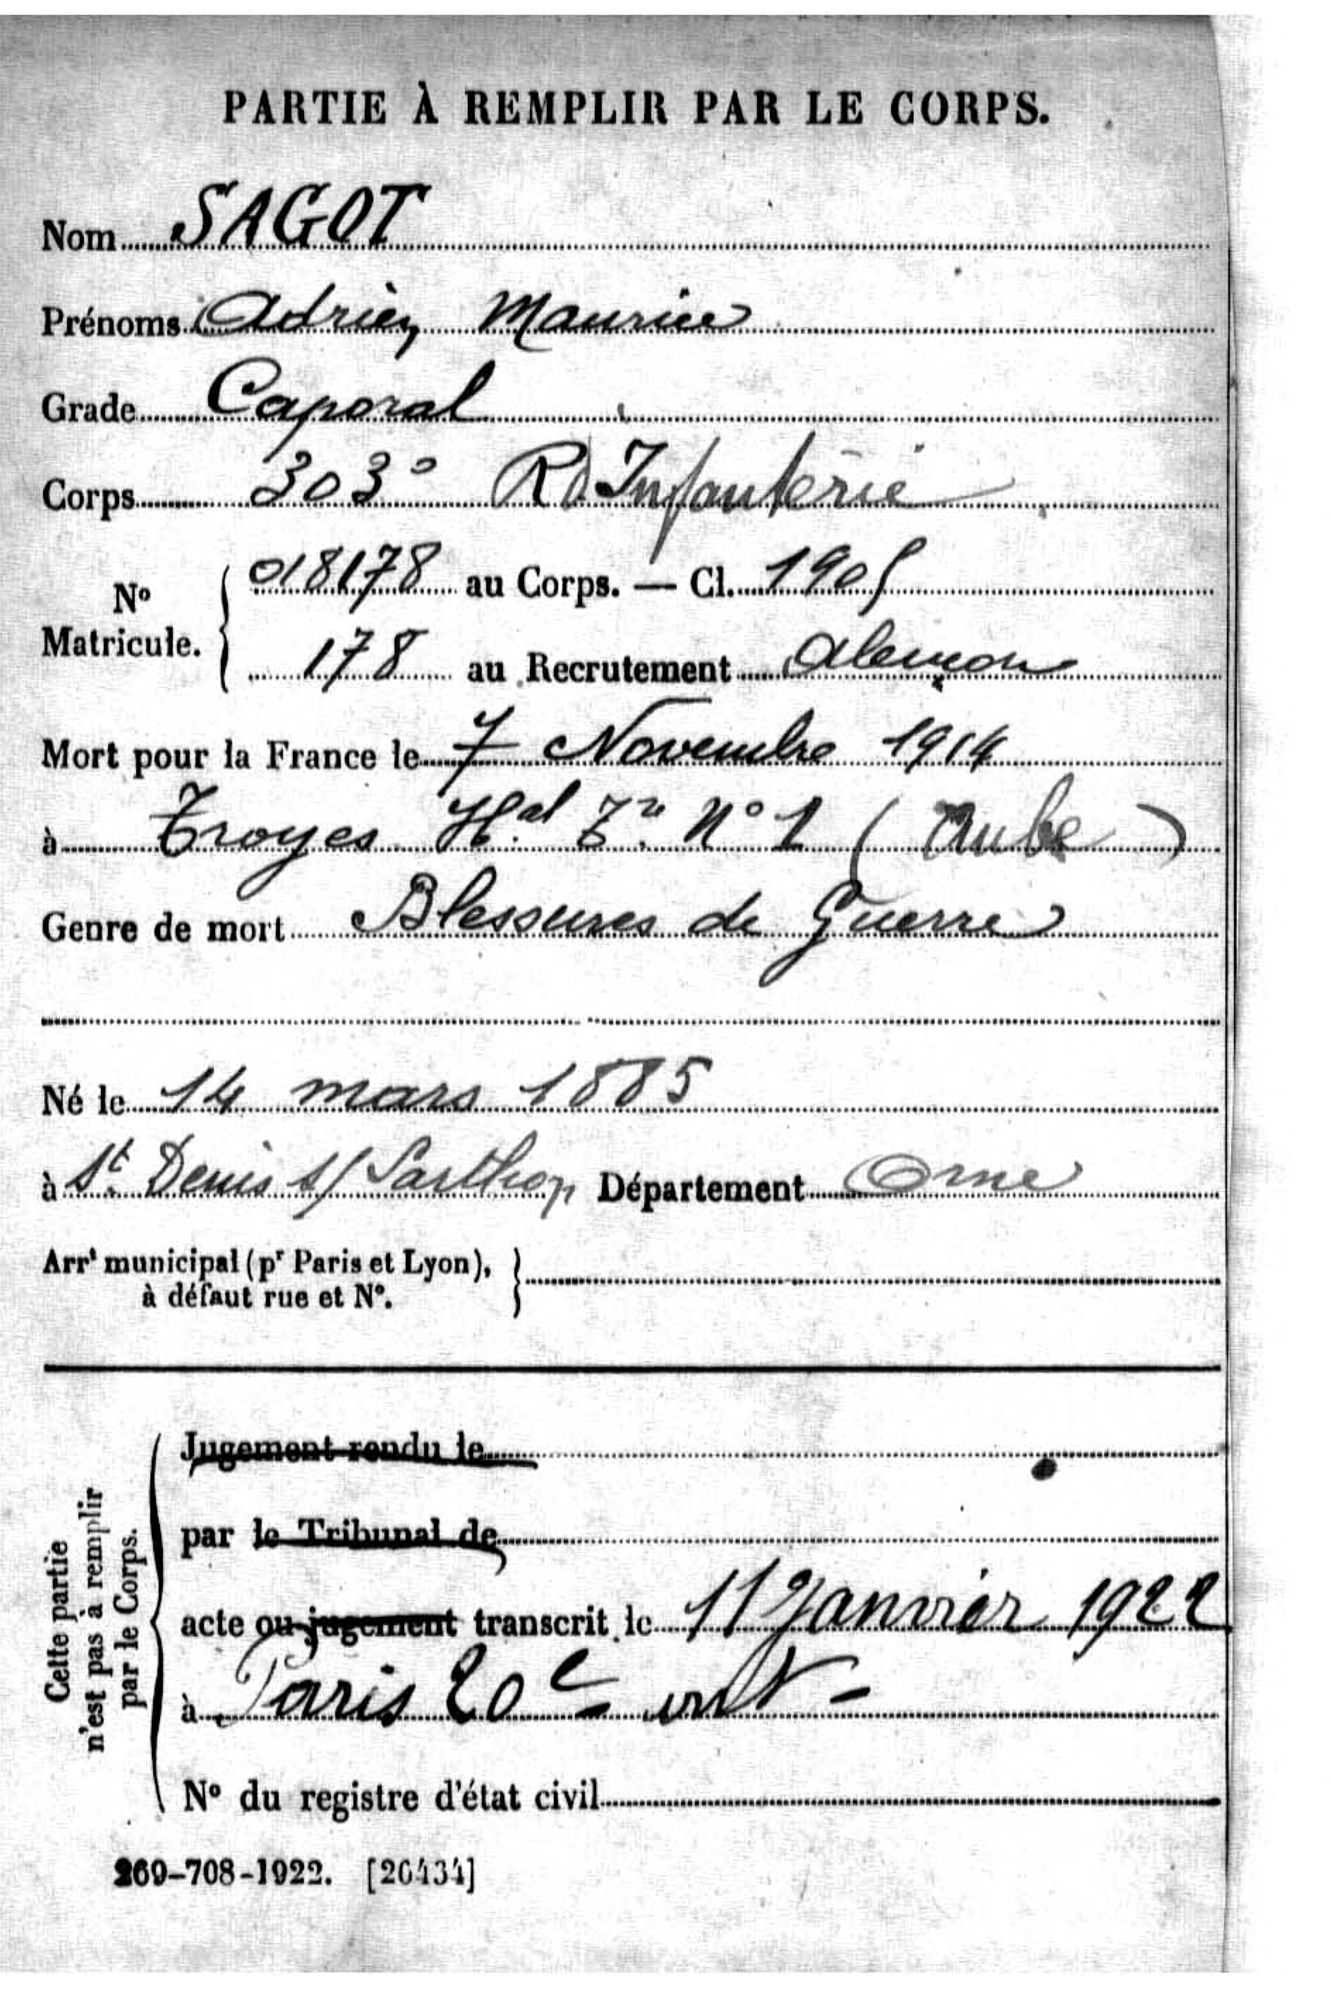 PARTIE À REMPLIR PAR LE CORPS.
Nom SAGOT
Prénoms Adrien Maurice
Grade Caporal
Corps 303e R d'Infanterie
No Matricule. 018178 au Corps. — Cl. 1905
178 au Recrutement Alençon
Mort pour la France le 7 Novembre 1914
à Troyes Hal Tre No 1 (Aube)
Genre de mort Blessures de Guerre
Né le 14 mars 1885
à St Denis s/ Sarthon Département Orne
Arrt municipal (pr Paris et Lyon),
à défaut rue et No.
Cette partie
n'est pas à remplir
par le Corps.
Jugement rendu le
par le Tribunal de
acte ou jugement transcrit le 11 Janvier 1922
à Paris 20e arrt
No du registre d'état civil
269-708-1922. [26434]